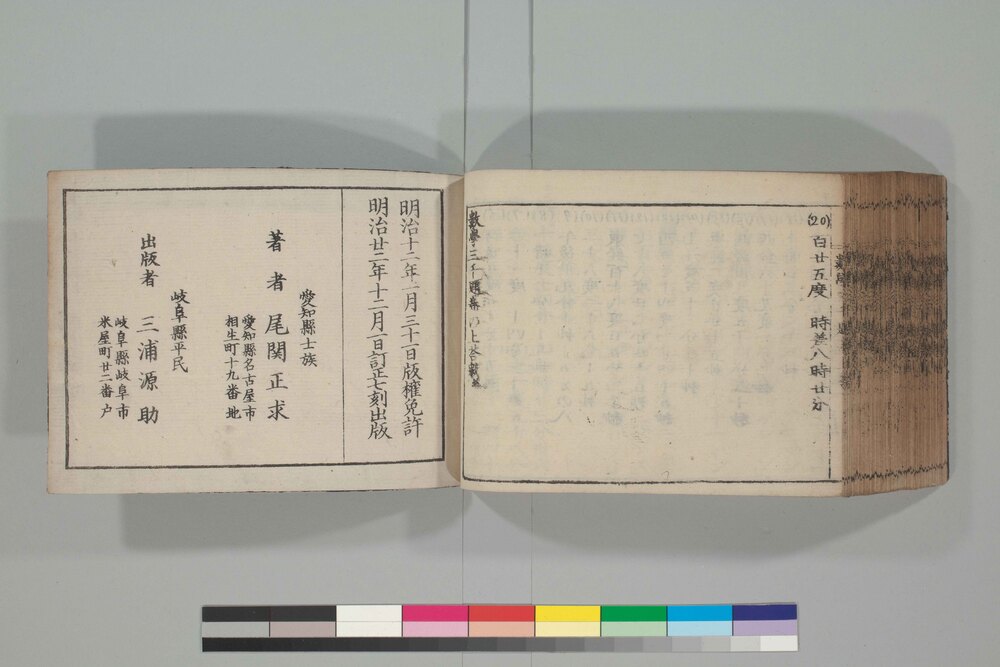 (20) 百廿五度 時差八時廿分
數學三千題
明治十二年一月三十一日版權免許
明治廿二年十二月一日訂正七刻出版
愛知縣士族
著者 尾関正求
愛知縣名古屋市
相生町十九番地
岐阜縣平民
出版者 三浦源助
岐阜縣岐阜市
米屋町廿二番户